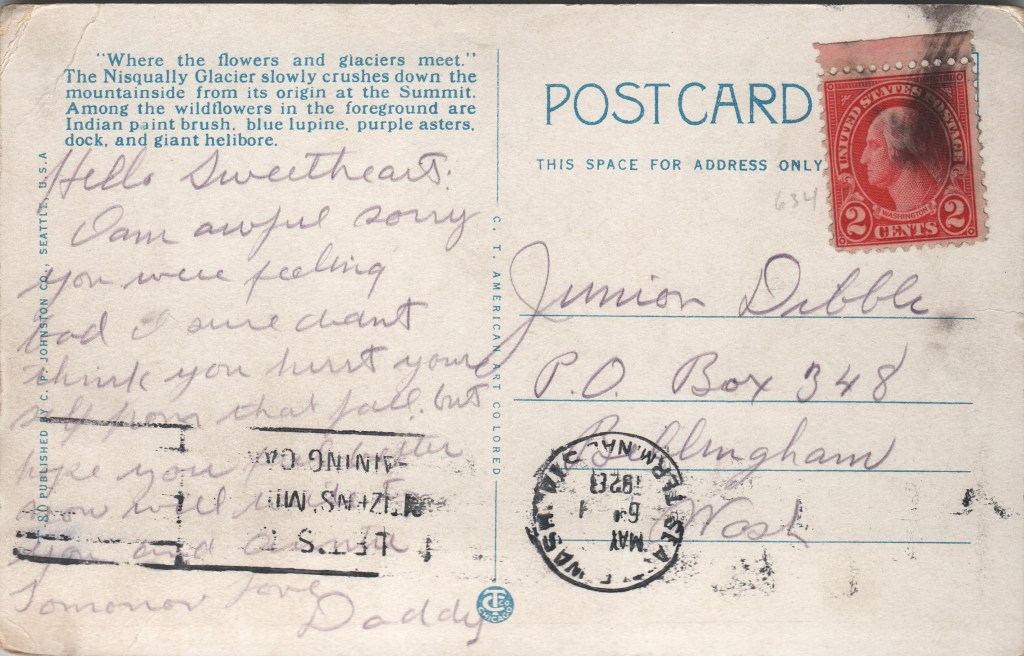 "Where the flowers and glaciers meet."
The Nisqually Glacier slowly crushes down the
mountainside from its origin at the Summit.
Among the wildflowers in the foreground are
Indian paint brush, blue lupine, purple asters,
dock, and giant helibore.
Hello Sweetheart.
I am awful sorry
you were feeling
bad I sure
think you hurt your
self from that fall. but
hope you better
soon will
you and
Tomorrow Love
Daddy
80 PUBLISHED BY C. P. JOHNSTON CO., SEATTLE, U.S.A
C. T. AMERICAN ART COLORED
C T CO
CHICAGO
POST CARD
THIS SPACE FOR ADDRESS ONLY
634
UNITED STATES POSTAGE
WASHINGTON
2 CENTS 2
Junior Dibble
P.O. Box 348
Bellingham
Wash
WASH.
TERMINAL STA
MAY
6
LET'S
TRAINING CA